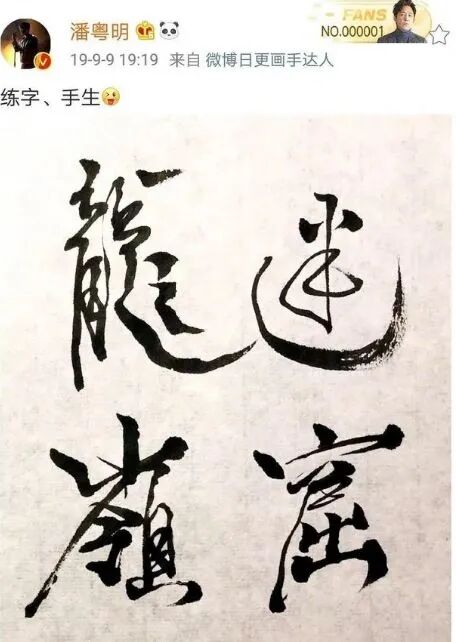 潘粤明
FANS
NO.000001
19-9-9 19:19 来自 微博日更画手达人
练字、手生
龍嶺
迷窟